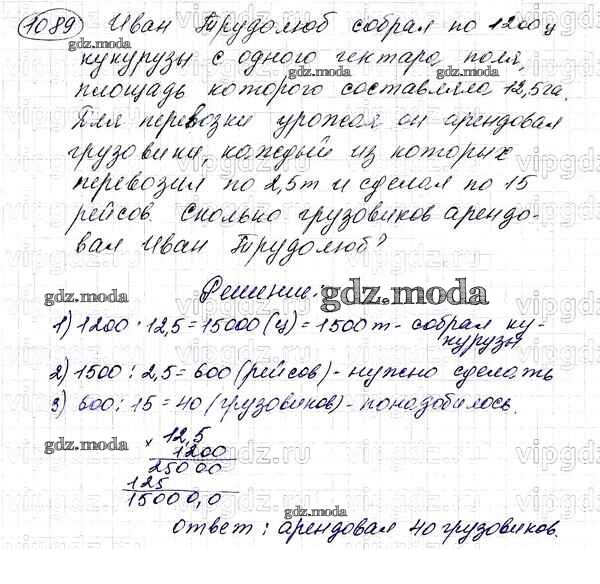 1089 Иван Трудолюб собрал по 1200 ц
кукурузы с одного гектара поля,
площадь которого составляла 12,5 га.
Для перевозки урожая он арендовал
грузовики, каждый из которых
перевозил по 2,5 т и сделал по 15
рейсов. Сколько грузовиков арендо-
вал Иван Трудолюб?
Решение.
1) 1200 · 12,5 = 15000 (ц) = 1500 т - собрал ку-
курузы
2) 1500 : 2,5 = 600 (рейсов) - нужно сделать
3) 600 : 15 = 40 (грузовиков) - понадобилось.
× 12,5
1200
25000
125
15000,0
ответ: арендовал 40 грузовиков.
gdz.moda
vipgdz.ru